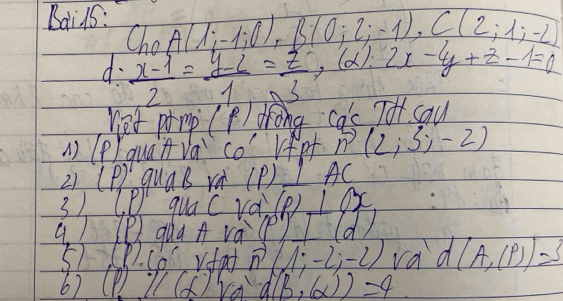 Bài 15:
Cho A(1;-1;0), B(0;2;-1), C(2;1;-2)
d: x-1/2 = y-2/1 = z/3, (α): 2x-4y+z-1=0
Viết ptmp (P) trong các TH sau
1) (P) qua A và có vtpt n (2;3;-2)
2) (P) qua B và (P) ⊥ AC
3) (P) qua C và (P) ⊥ Ox
4) (P) qua A và (P) ⊥ (d)
5) (P) có vtpt n (1;-2;-2) và d(A,(P))=3
6) (P) // (α) và d(B,(α))=4